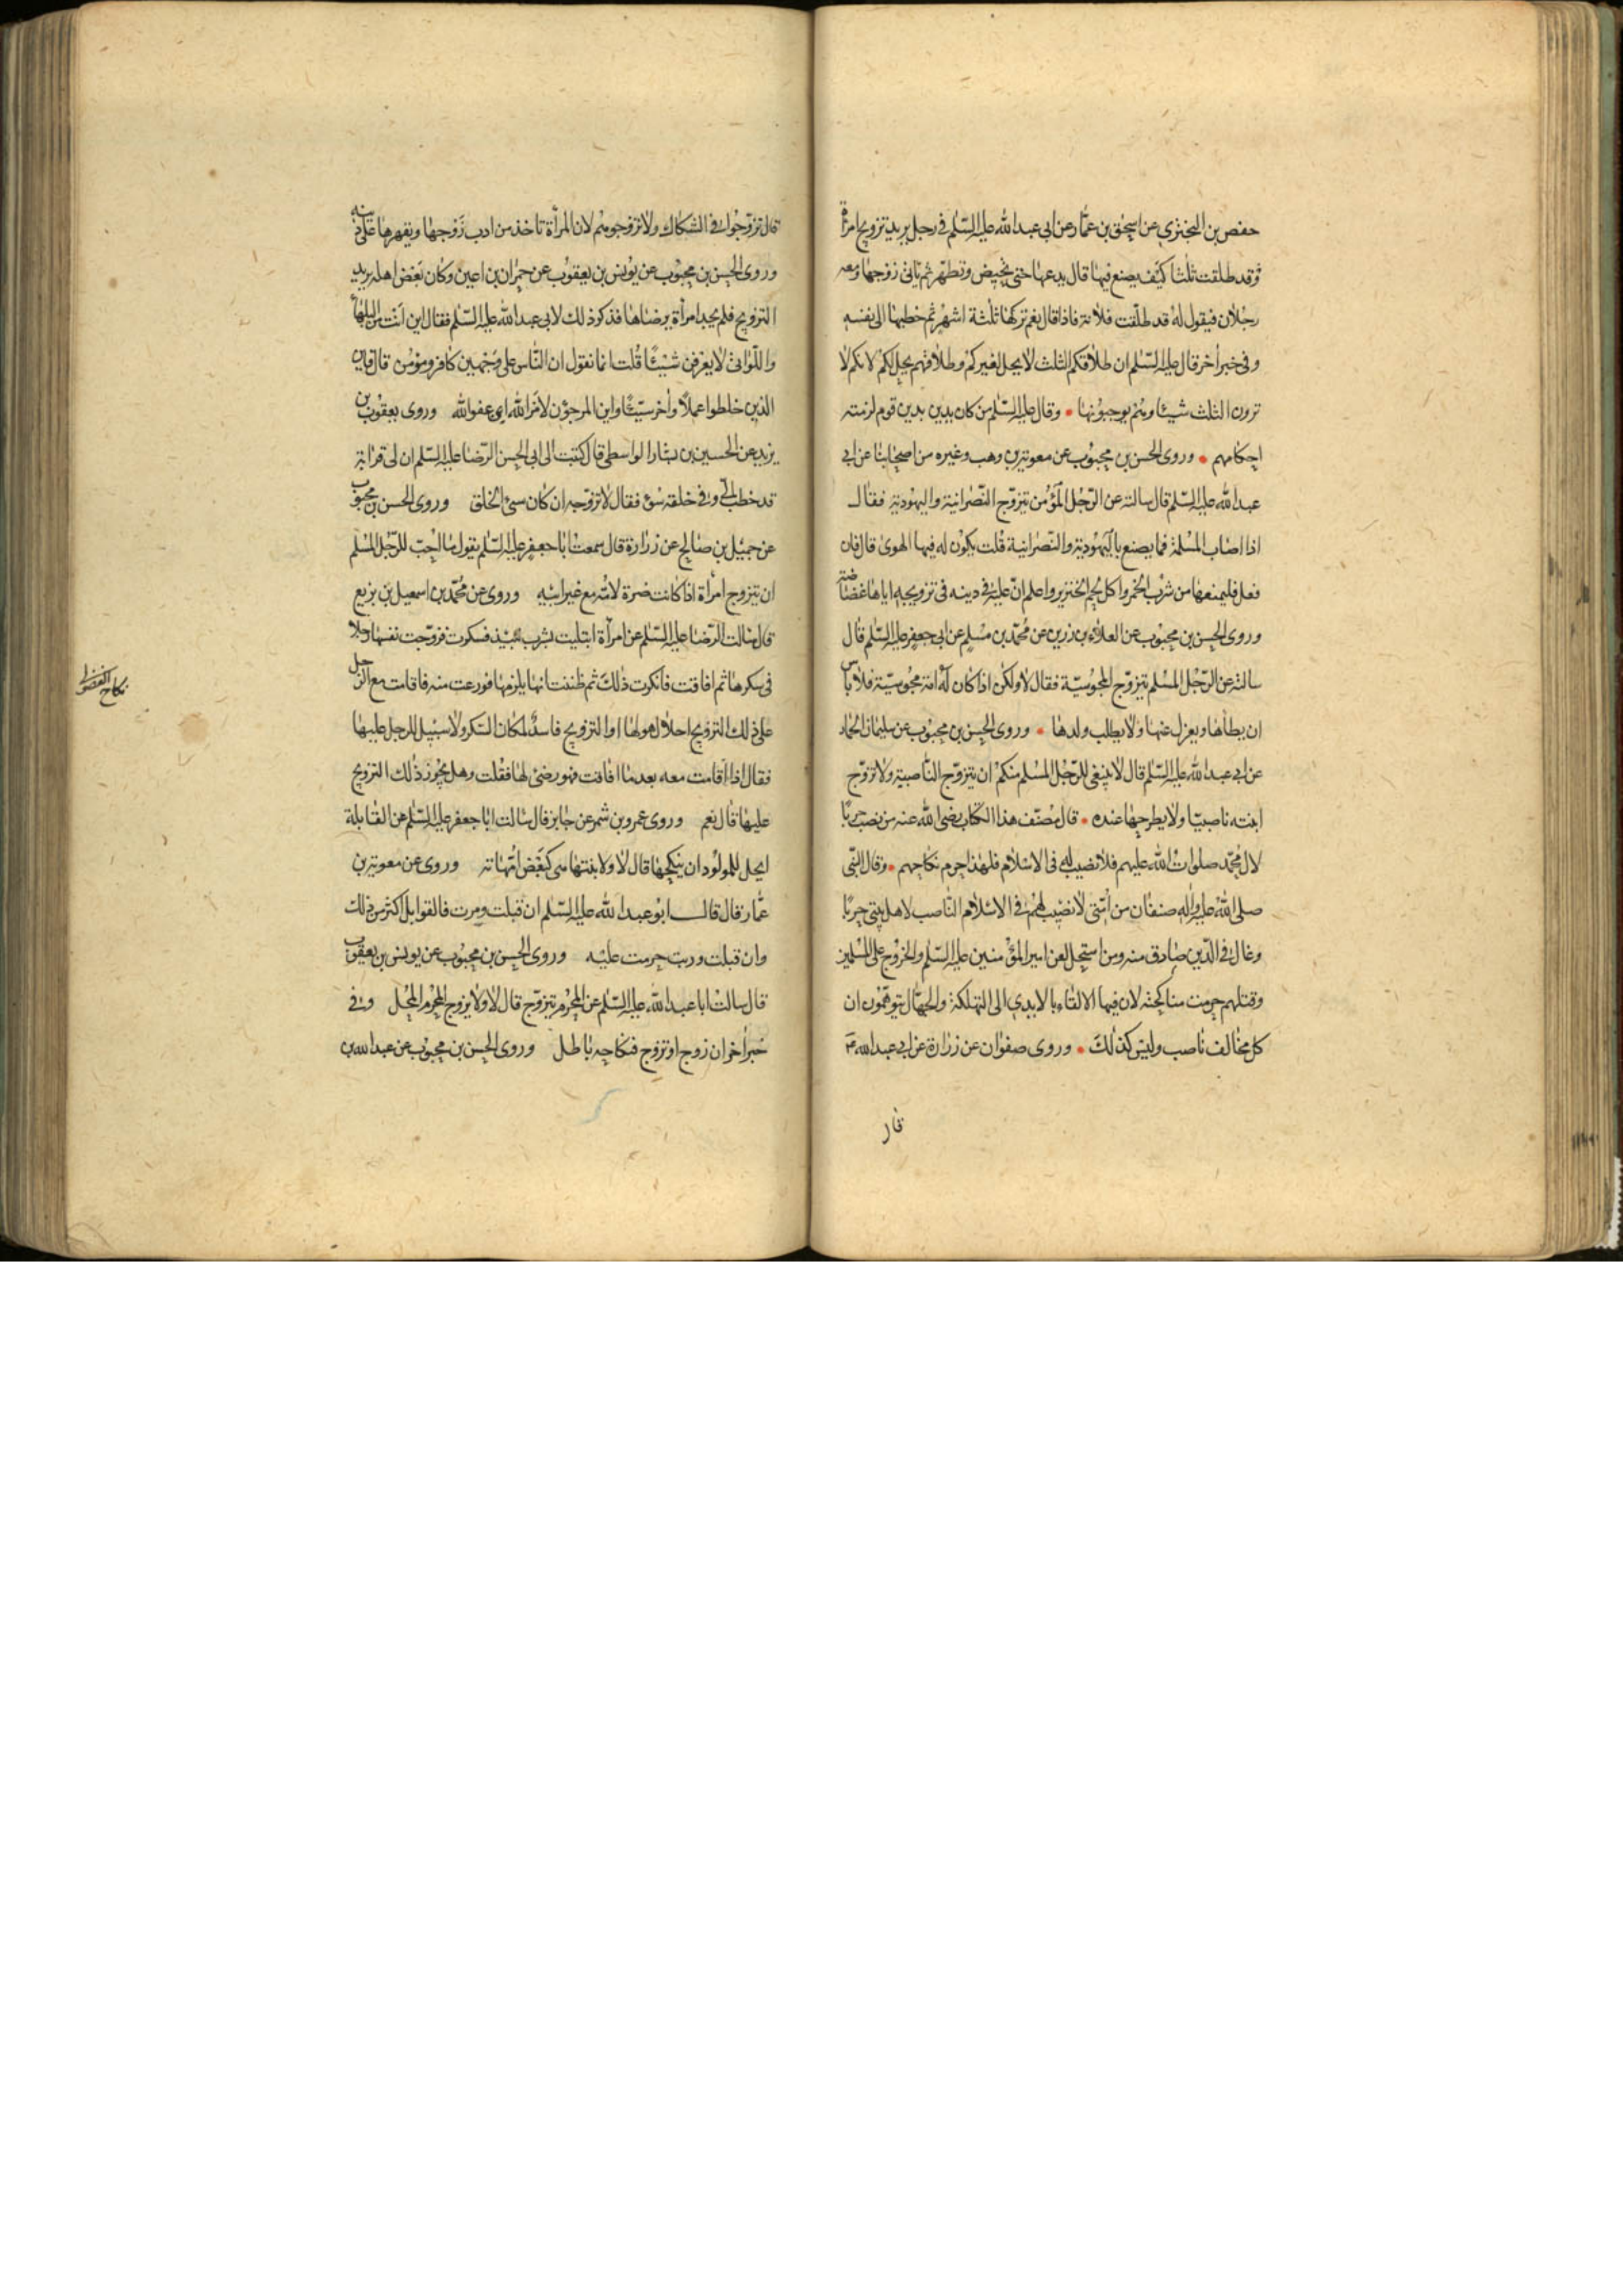 حفص بن البختري عن اسحق بن عمار عن ابى عبد الله عليه السلام فى رجل يريد تزويج امرأة
وقد طلقت ثلثا كيف يصنع فيها قال يدعها حتى تحيض وتطهر ثم ياتى زوجها ومعه
رجلان فيقول له قد طلقت فلانة فاذا قال نعم تركها ثلثة اشهر ثم خطبها الى نفسه
وفى خبر أخر قال عليه السلام ان طلاقكم الثلث لا يحل لغيركم وطلاقهم يحل لكم لانكم لا
ترون الثلث شيئا وهم يوجبونها وقال عليه السلام من كان يدين بدين قوم لزمته
احكامهم وروى الحسن بن محبوب عن معوية بن وهب وغيره من اصحابنا عن ابى
عبد الله عليه السلام قال سالته عن الرجل المؤمن يتزوج النصرانية واليهودية فقال
اذا اصاب المسلمة فما يصنع باليهودية والنصرانية قلت يكون له فيها الهوى قال فان
فعل فليمنعها من شرب الخمر واكل لحم الخنزير واعلم ان عليه فى دينه فى تزويجه اياها غضاضة
وروى الحسن بن محبوب عن العلاء بن رزين عن محمد بن مسلم عن ابى جعفر عليه السلام قال
سالته عن الرجل المسلم يتزوج المجوسية فقال لا ولكن اذا كان له امة مجوسية فلا باس
ان يطأها ويعزل عنها ولا يطلب ولدها وروى الحسن بن محبوب عن سليمان الحمار
عن ابى عبد الله عليه السلام قال لا ينبغى للرجل المسلم منكم ان يتزوج الناصبية ولا تزوج
ابنته ناصبيا ولا يطرحها عنده قال مصنف هذا الكتاب رضى الله عنه من نصب حربا
لال محمد صلوات الله عليهم فلا نصيب له فى الاسلام فلهذا حرم نكاحهم وقال النبى
صلى الله عليه واله صنفان من امتى لا نصيب لهم فى الاسلام الناصب لاهل بيتى حربا
وغال فى الدين مارق منه ومن استحل لعن امير المؤمنين عليه السلام والخروج على المسلمين
وقتلهم حرمت مناكحته لان فيها الالقاء بالايدى الى التهلكة والجهال يتوهمون ان
كل مخالف ناصب وليس كذلك وروى صفوان عن زرارة عن ابى عبد الله ع
قال
قال تزوجوا فى الشكاك ولا تزوجوهم لان المرأة تاخذ من ادب زوجها ويقهرها على دينه
وروى الحسن بن محبوب عن يونس بن يعقوب عن حمران بن اعين وكان بعض اهله يريد
التزويج فلم يجد امرأة يرضاها فذكر ذلك لابى عبد الله عليه السلام فقال اين انت من البلهاء
واللواتى لا يعرفن شيئا قلت انما نقول ان الناس على وجهين كافر ومؤمن قال فاين
الذين خلطوا عملا وأخر سيئا واين المرجون لامر الله اى عفو الله وروى يعقوب بن
يزيد عن الحسين بن بشار الواسطى قال كتبت الى ابى الحسن الرضا عليه السلام ان لى قرابة
قد خطب الى وفى خلقه سوء فقال لا تزوجه ان كان سيئ الخلق وروى الحسن بن محبوب
عن جميل بن صالح عن زرارة قال سمعت ابا جعفر عليه السلام يقول ما احب للرجل المسلم
ان يتزوج امرأة اذا كانت ضرة لامه مع غير ابيه وروى عن محمد بن اسمعيل بن بزيع
قال سالت الرضا عليه السلام عن امرأة ابتليت بشرب نبيذ فسكرت فزوجت نفسها رجلا
فى سكرها ثم افاقت فانكرت ذلك ثم ظننت انها يلزمها فورعت منه فاقامت مع الرجل
على ذلك التزويج احلال هو لها او التزويج فاسد لمكان السكر ولا سبيل للرجل عليها
فقال اذا اقامت معه بعد ما افاقت فهو رضى لها فقلت وهل يجوز ذلك التزويج
عليها قال نعم وروى عمرو بن شمر عن جابر قال سالت ابا جعفر عليه السلام عن القابلة
ايحل للمولود ان ينكحها قال لا ولا بنتها هى كبعض امهاته وروى عن معوية بن
عمار قال قال ابو عبد الله عليه السلام ان قبلت ومرت فالقوابل اكثر من ذلك
وان قبلت وربت حرمت عليه وروى الحسن بن محبوب عن يونس بن يعقوب
قال سالت ابا عبد الله عليه السلام عن المحرم يتزوج قال لا ولا يزوج المحرم المحل وفى
خبر أخر ان زوج او تزوج فنكاحه باطل وروى الحسن بن محبوب عن عبد الله بن
نكاح الفضولى